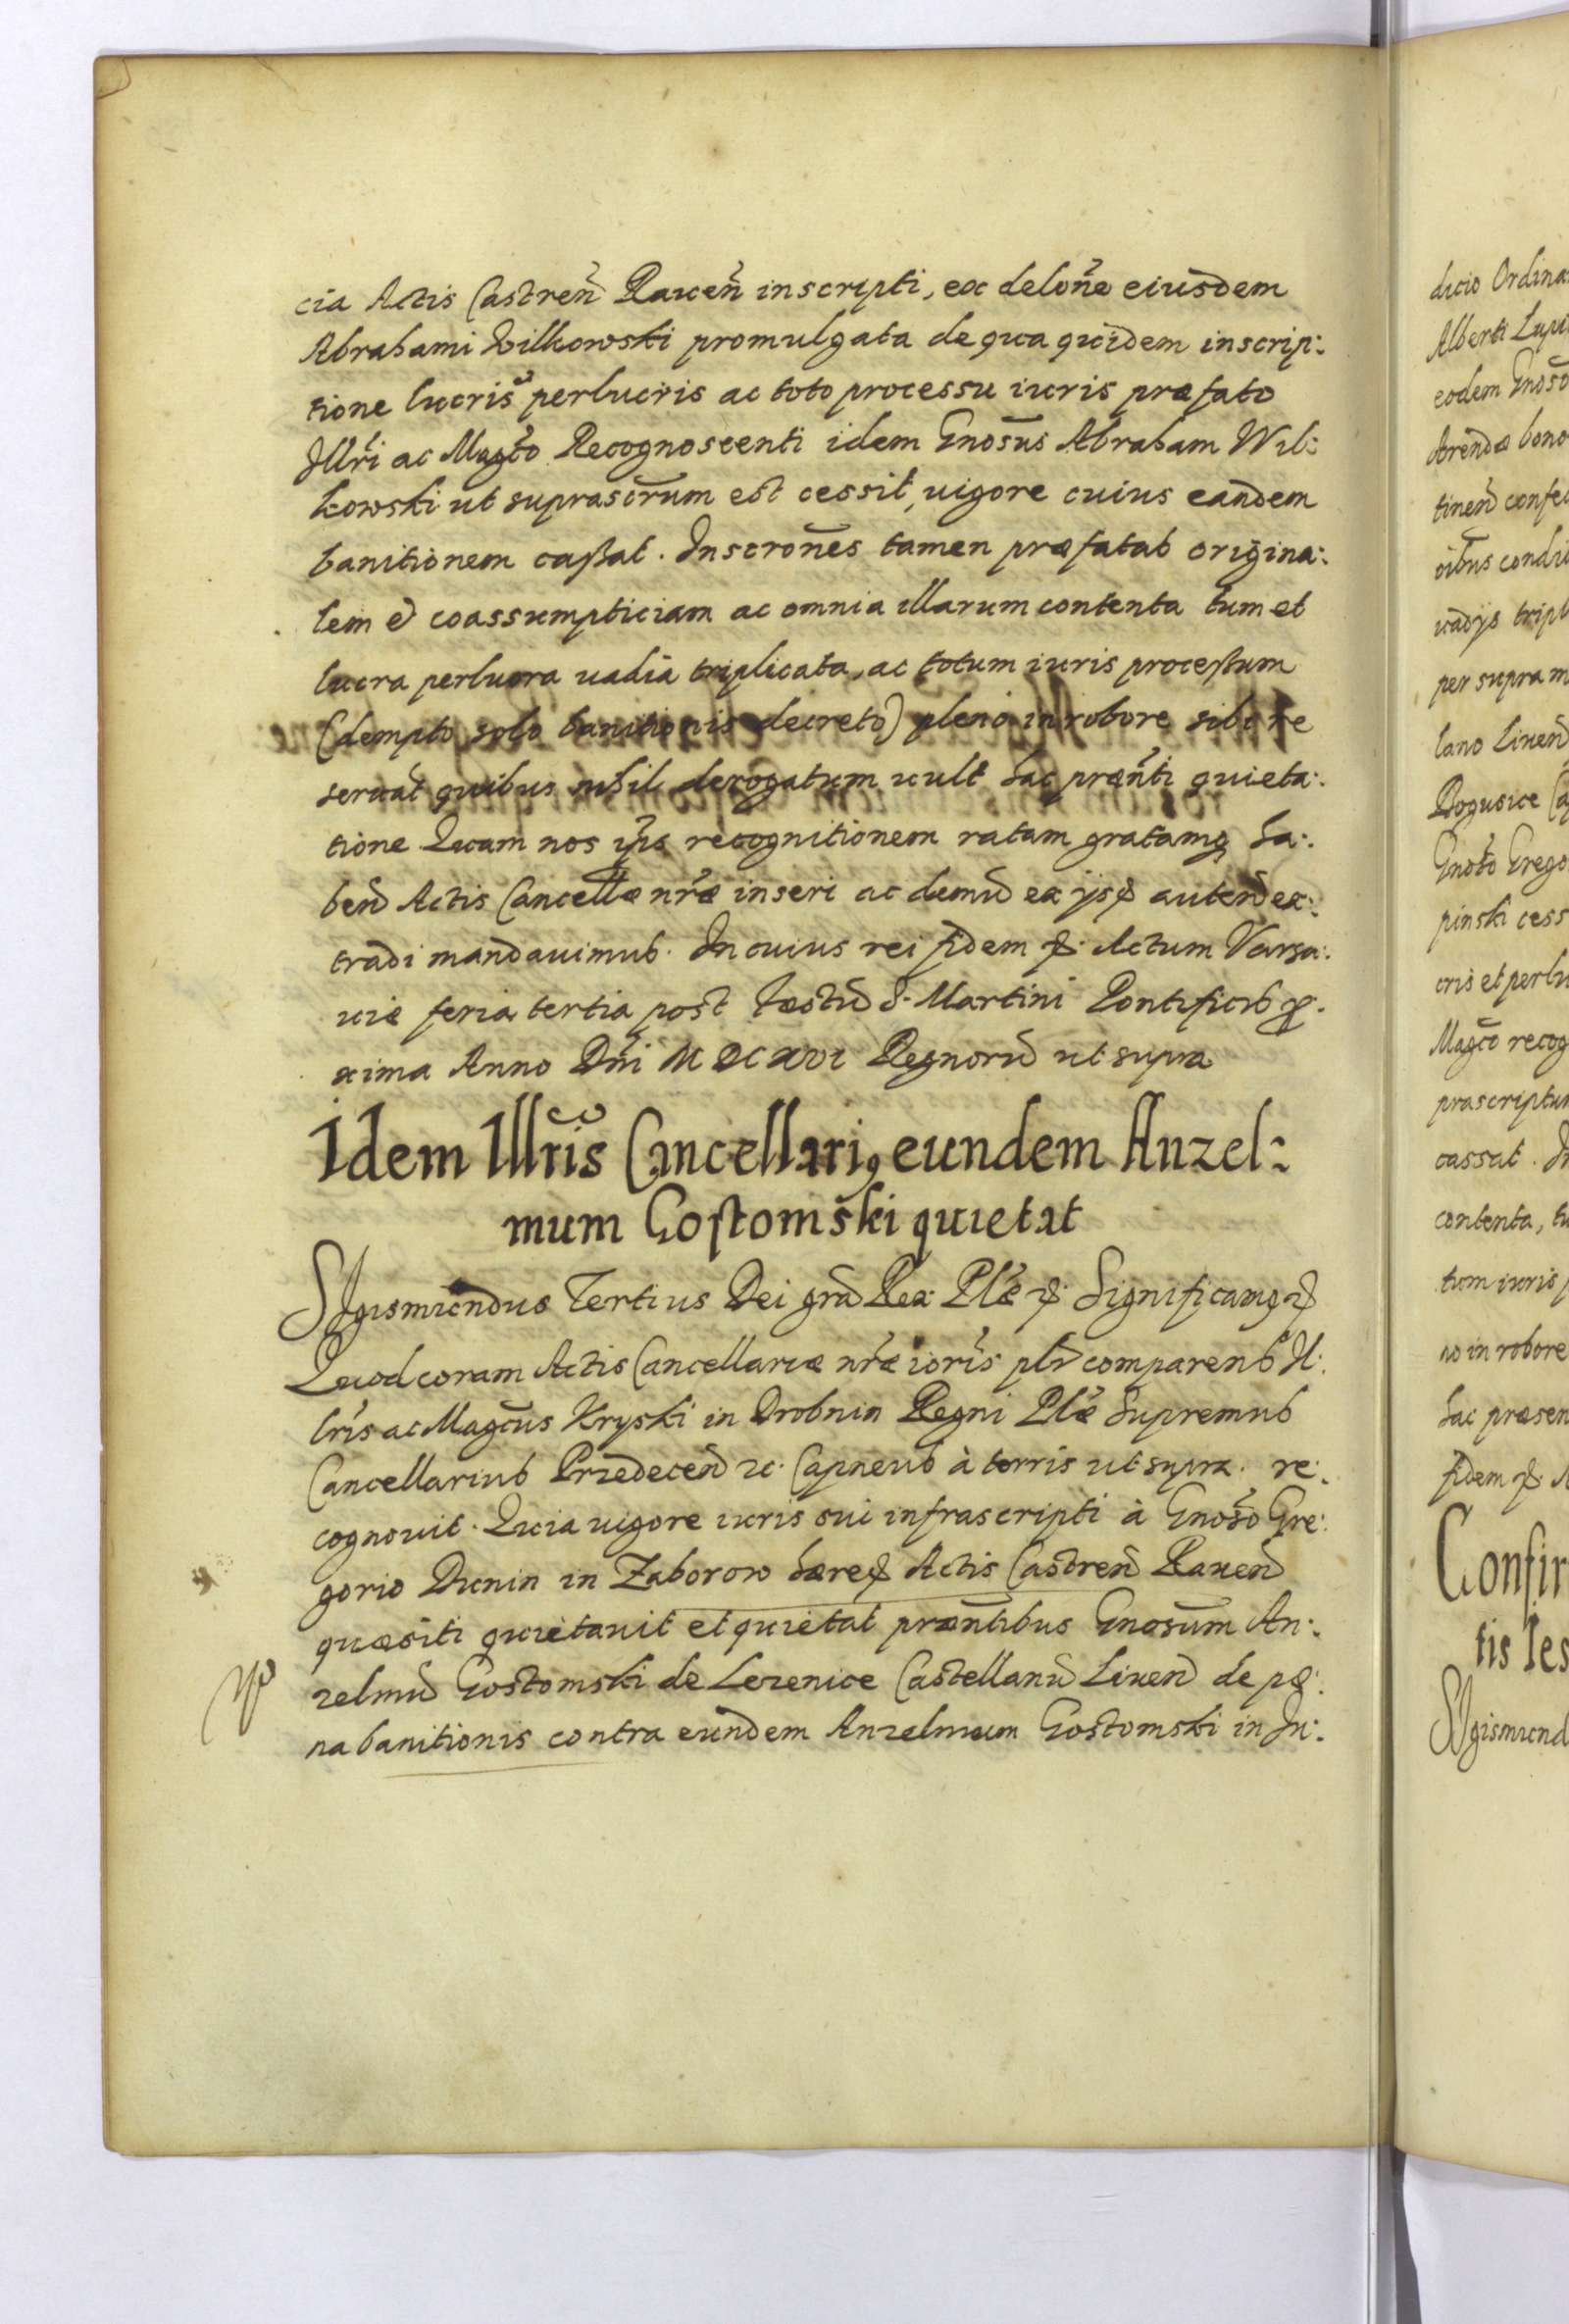 cia Actis Castreñ Raueñ inscripti, ex deloñe eiusdem
Abrahami Wilkowski promulgata de qua quidem inscrip:
tione lucris perlucris ac toto processu iuris præfato
Illri ac Magco Recognoscenti idem Gnosus Abraham Wil:
kowski ut suprascrum est cessit, uigore cuius eandem
banitionem caßat. Inscrones tamen præfatas origina:
lem et coassumpticiam ac omnia illarum contenta tum et
lucra perlucra uadia triplicata, ac totum iuris proceßum
(dempto solo banitionis decreto) pleno in robore sibi re
seruat quibus nihil derogatum uult hac prænti quieta:
tione Quam nos ipsam recognitionem ratam gratamq ha:
bend Actis Cancellæ nræ inseri ac demum ex ijsd autend ex:
tradi mandauimus. In cuius rei fidem &. Actum Varsa:
uiæ feria tertia post Festum S. Martini Pontificis pro:
xima Anno Dni MDCXVI Regnorum ut supra
Idem Illris Cancellarius, eundem Anzel:
mum Gostomski quietat
Sigismundus Tertius Dei gra Rex Plæ &. Significamus &
Quod coram Actis Cancellariæ nræ ioris plr comparens Il:
lris ac Magcus Kryski in Drobnin Regni Plæ Supremus
Cancellarius Przedecen &c. Capneus à terris ut supra. re:
cognouit. Quia uigore iuris sui infrascripti à Gnoso Gre:
gorio Dunin in Zaborow hæred Actis Castrend Rauend
quæsiti quietauit et quietat præntibus Gnosum An:
zelmum Gostomski de Lezenice Castellanum Liuend de pœ:
na banitionis contra eundem Anzelmum Gostomski in Iu:
dicio Ordina
Alberti Lupi
eodem Gnoso
Arendæ bono
tinend confec
oibus condi
uadijs tripl
per supra m
lano Liuend
Rogusice Ca
Gnoso Grego
pinski cess
cris et perlu
Magco recog
præscriptum
cassat. In
contenta, tu
tum iuris p
no in robore
hac præsen
fidem &. A
Confir
tis Ies
Sigismund